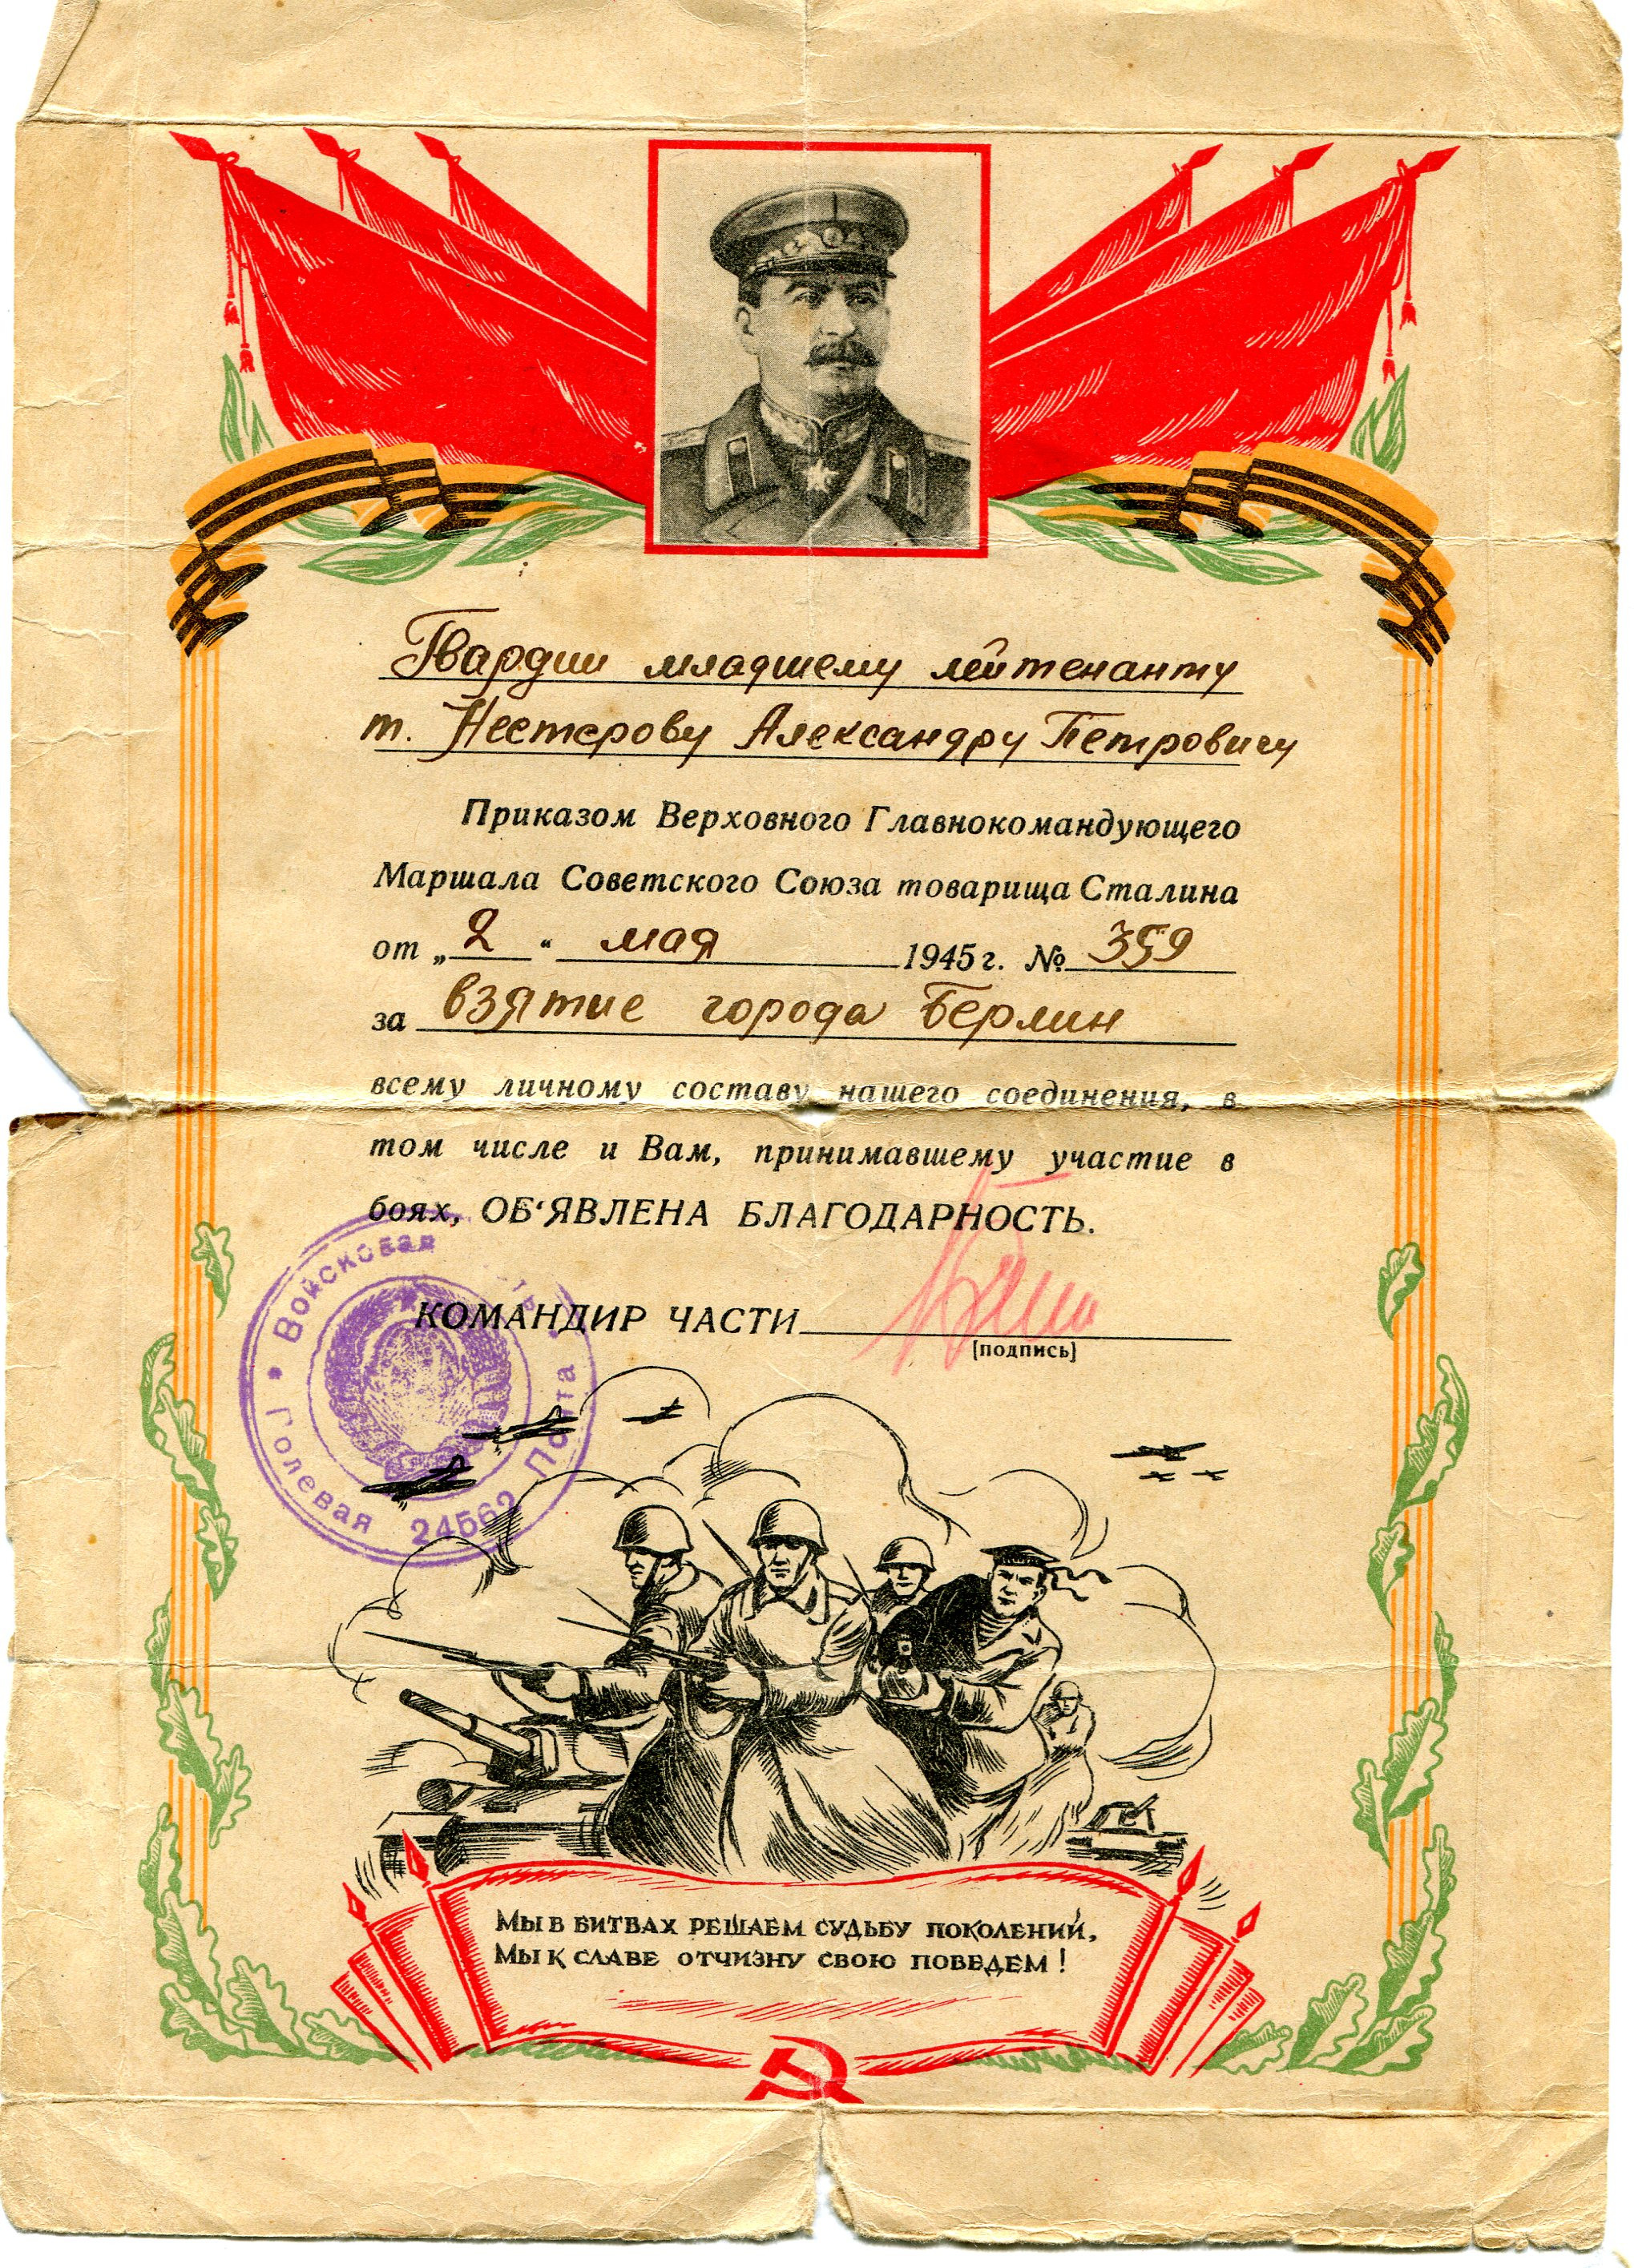 Гвардии младшему лейтенанту
т. Нестерову Александру Петровичу
Приказом Верховного Главнокомандующего
Маршала Советского Союза товарища Сталина
от „2“ мая 1945 г. № 359
за взятие города Берлин
всему личному составу нашего соединения, в
том числе и Вам, принимавшему участие в
боях, ОБ‘ЯВЛЕНА БЛАГОДАРНОСТЬ.
КОМАНДИР ЧАСТИ
(подпись)
* Войсковая
Полевая Почта
24562
МЫ В БИТВАХ РЕШАЕМ СУДЬБУ ПОКОЛЕНИЙ,
МЫ К СЛАВЕ ОТЧИЗНУ СВОЮ ПОВЕДЕМ!